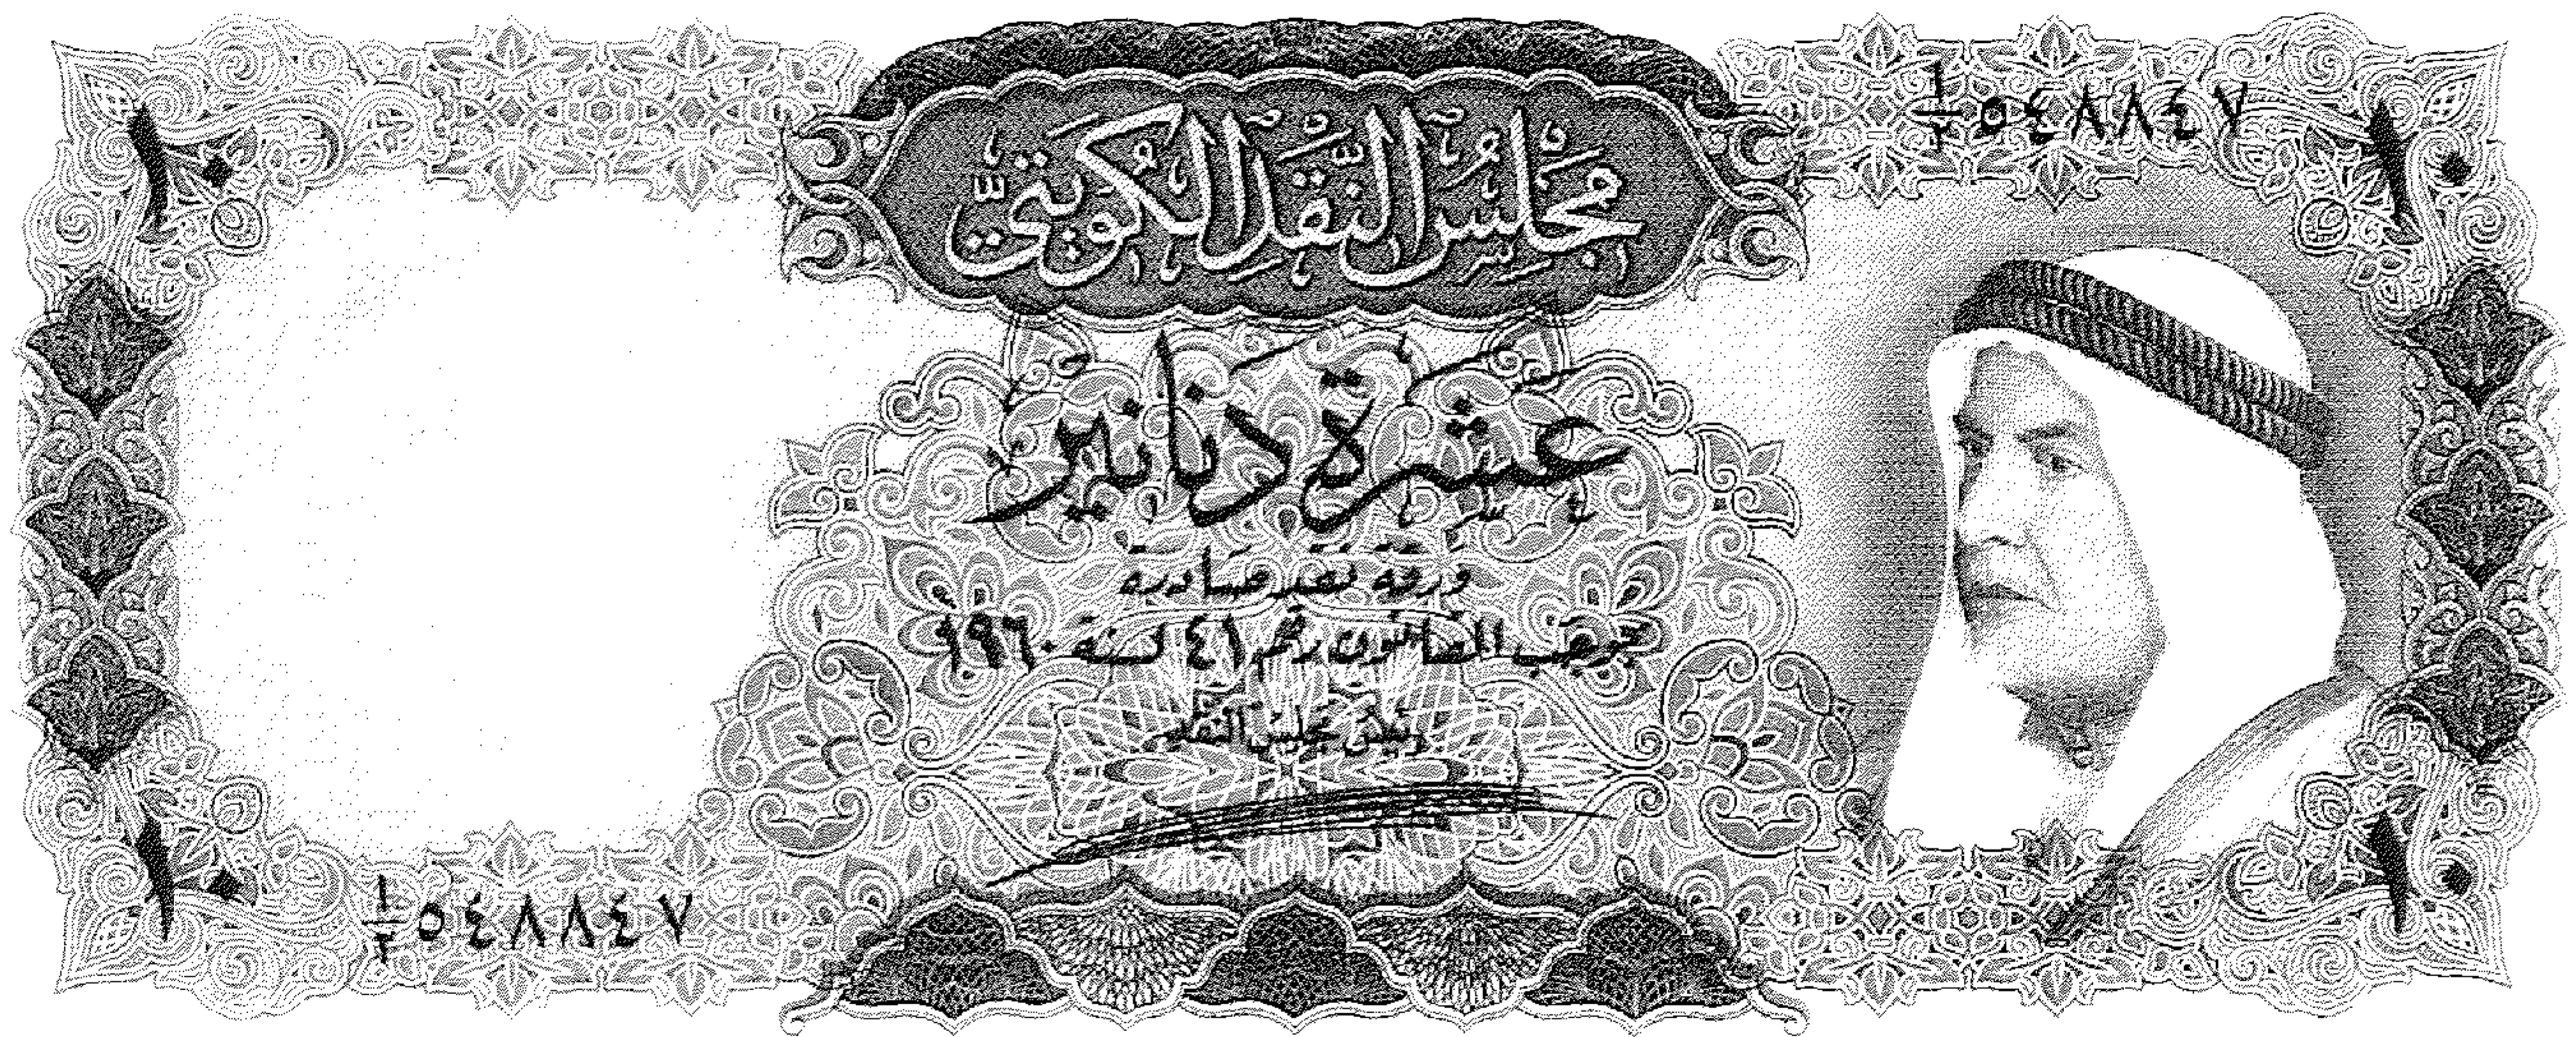 ١٠
١/٢ ٥٤٨٨٤٧
١٠
مَجْلِسُ النَّقْدِ الْكُوَيْتِيّ
عشرة دنانير
ورقة نقد صادرة
بموجب القانون رقم ٤١ لسنة ١٩٦٠
رئيس مجلس النقد
١٠
١/٢ ٥٤٨٨٤٧
١٠